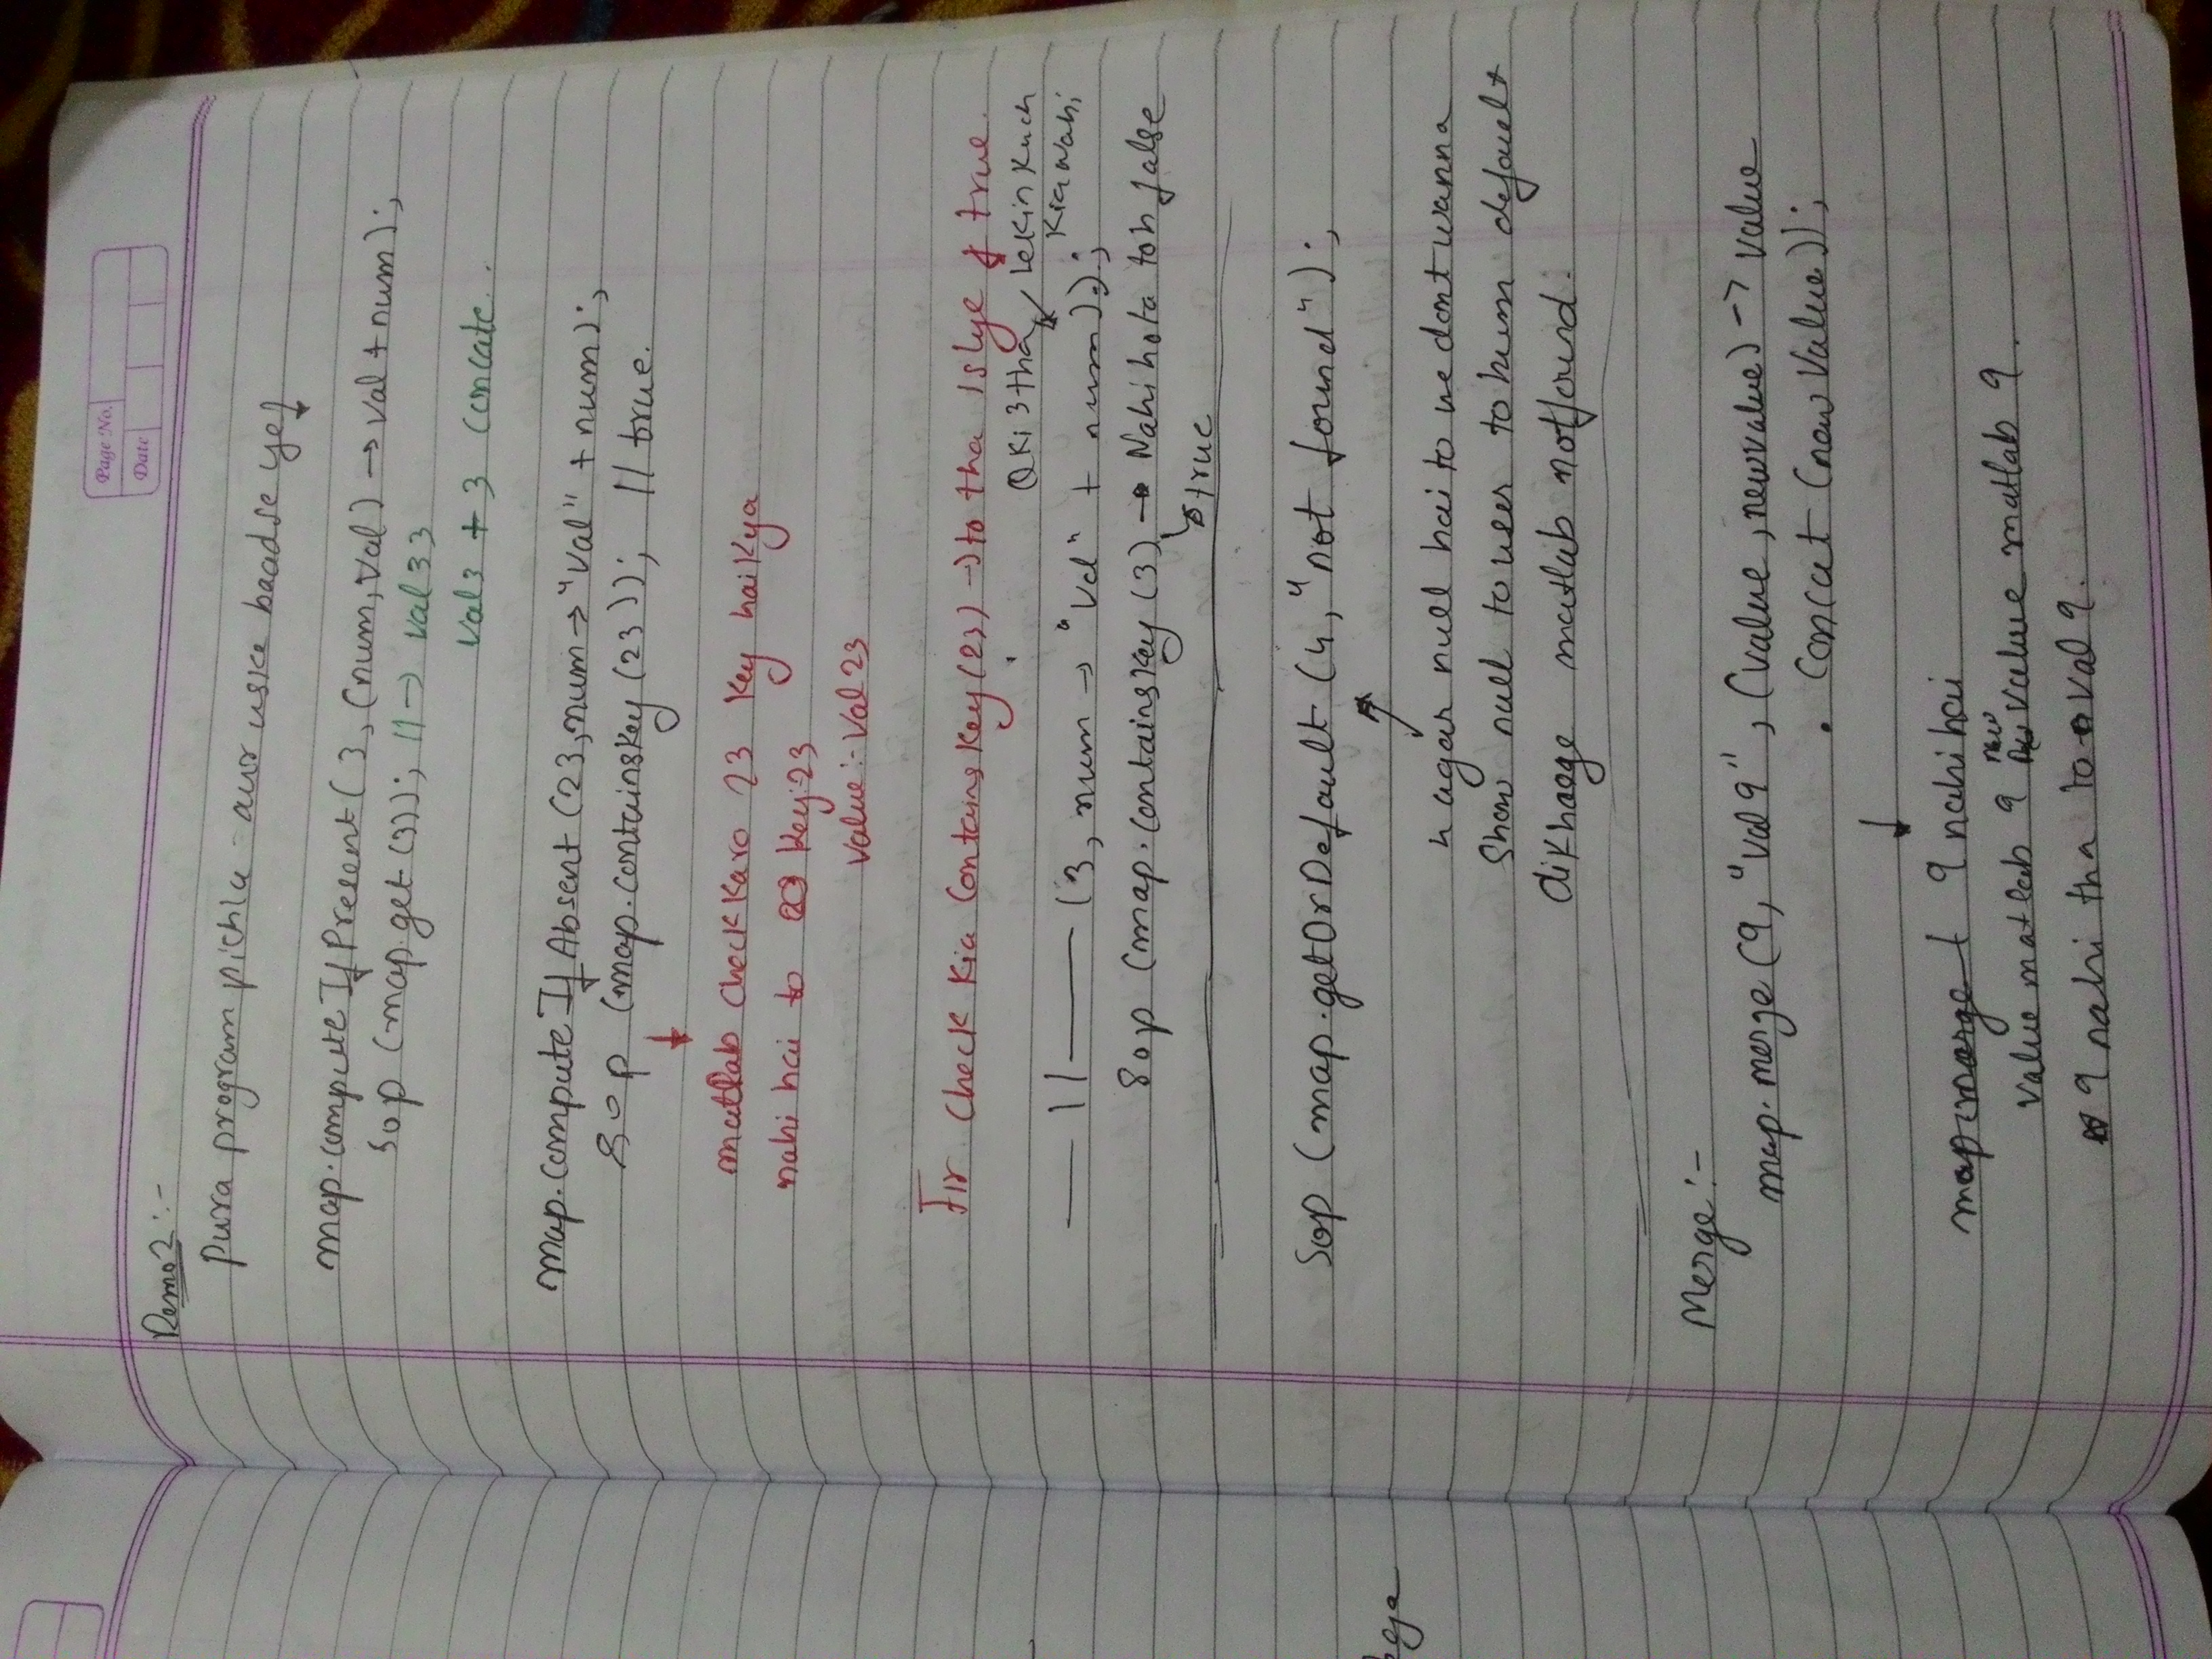 Page No.
Date
Demo2 :-
Pura program pichla aur uske baadse ye
map.computeIfPresent(3, (num, val) → val + num);
Sop (map.get(3)); // → val33
Val3 + 3 Concate..
map.computeIfAbsent (23, num → "Val" + num);
Sop (map.containsKey (23)); // true.
↓
matlab Check Karo 23 Key hai Kya
nahi hai to Key:23
Value :- Val23
Fir Check Kia Contains Key (23) → to tha Islye true.
Ki 3 tha Lekin Kuch
Kia Nahi
— 11 — (3, num → "Val" + num));
Sop (map.containsKey (3) → Nahi hota toh false
↳ true
Sop (map.getOrDefault (4, "not found");
4 agar null hai to we dont wanna
Show null to user to hum default
dikhaege matlab notfound.
Merge :-
map.merge (9, "val9", (value, newvalue) → value
. Concat (newValue));
↓
map.merge ( 9 nahi hai
Value matlab 9 new Value matlab 9.
9 nahi tha to val 9.
ega